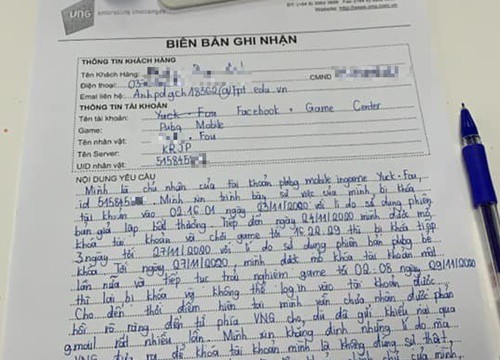 VNG embracing challenges
Website: http://www.vng.com.vn
BIÊN BẢN GHI NHẬN
THÔNG TIN KHÁCH HÀNG
Tên Khách Hàng:
Điện thoại: 03
CMND
Email liên hệ: Anhpdgch18562@fpt.edu.vn
THÔNG TIN TÀI KHOẢN
Tên tài khoản: Yuck - Fou Facebook + Game Center
Game: Pubg Mobile
Tên nhân vật: Fou
Tên Server: KRJP
UID nhân vật: 515845
NỘI DUNG YÊU CẦU
Mình là chủ nhân của tài khoản pubg mobile ingame Yuck-Fou,
id 515845 . Mình xin trình bày sự việc của mình, bị khóa
tài khoản vào 02.16.01 ngày 23/11/2020 với lí do sử dụng phiên
bản giả lập bất thường tiếp đến ngày 24/11/2020 mình được mở
khóa tài khoản và chơi game tới 16.22.29 thì bị khóa tiếp
3 ngày tới 27/11/2020 với lí do sử dụng phiên bản pubg bẻ
khóa. Tới ngày 27/11/2020 mình được mở khóa tài khoản một
lần nữa và tiếp tục trải nghiệm game tới 02.08 ngày 29/11/2020
thì lại bị khóa và không thể log in vào tài khoản được
Cho đến thời điểm hiện tại mình vẫn chưa nhận được phản
hồi rõ ràng đến từ phía VNG cho dù đã gửi khiếu nại qua
gmail rất nhiều lần. Mình xin khẳng định những lí do mà
VNG đưa ra để khóa tài khoản mình là không đúng sự thật